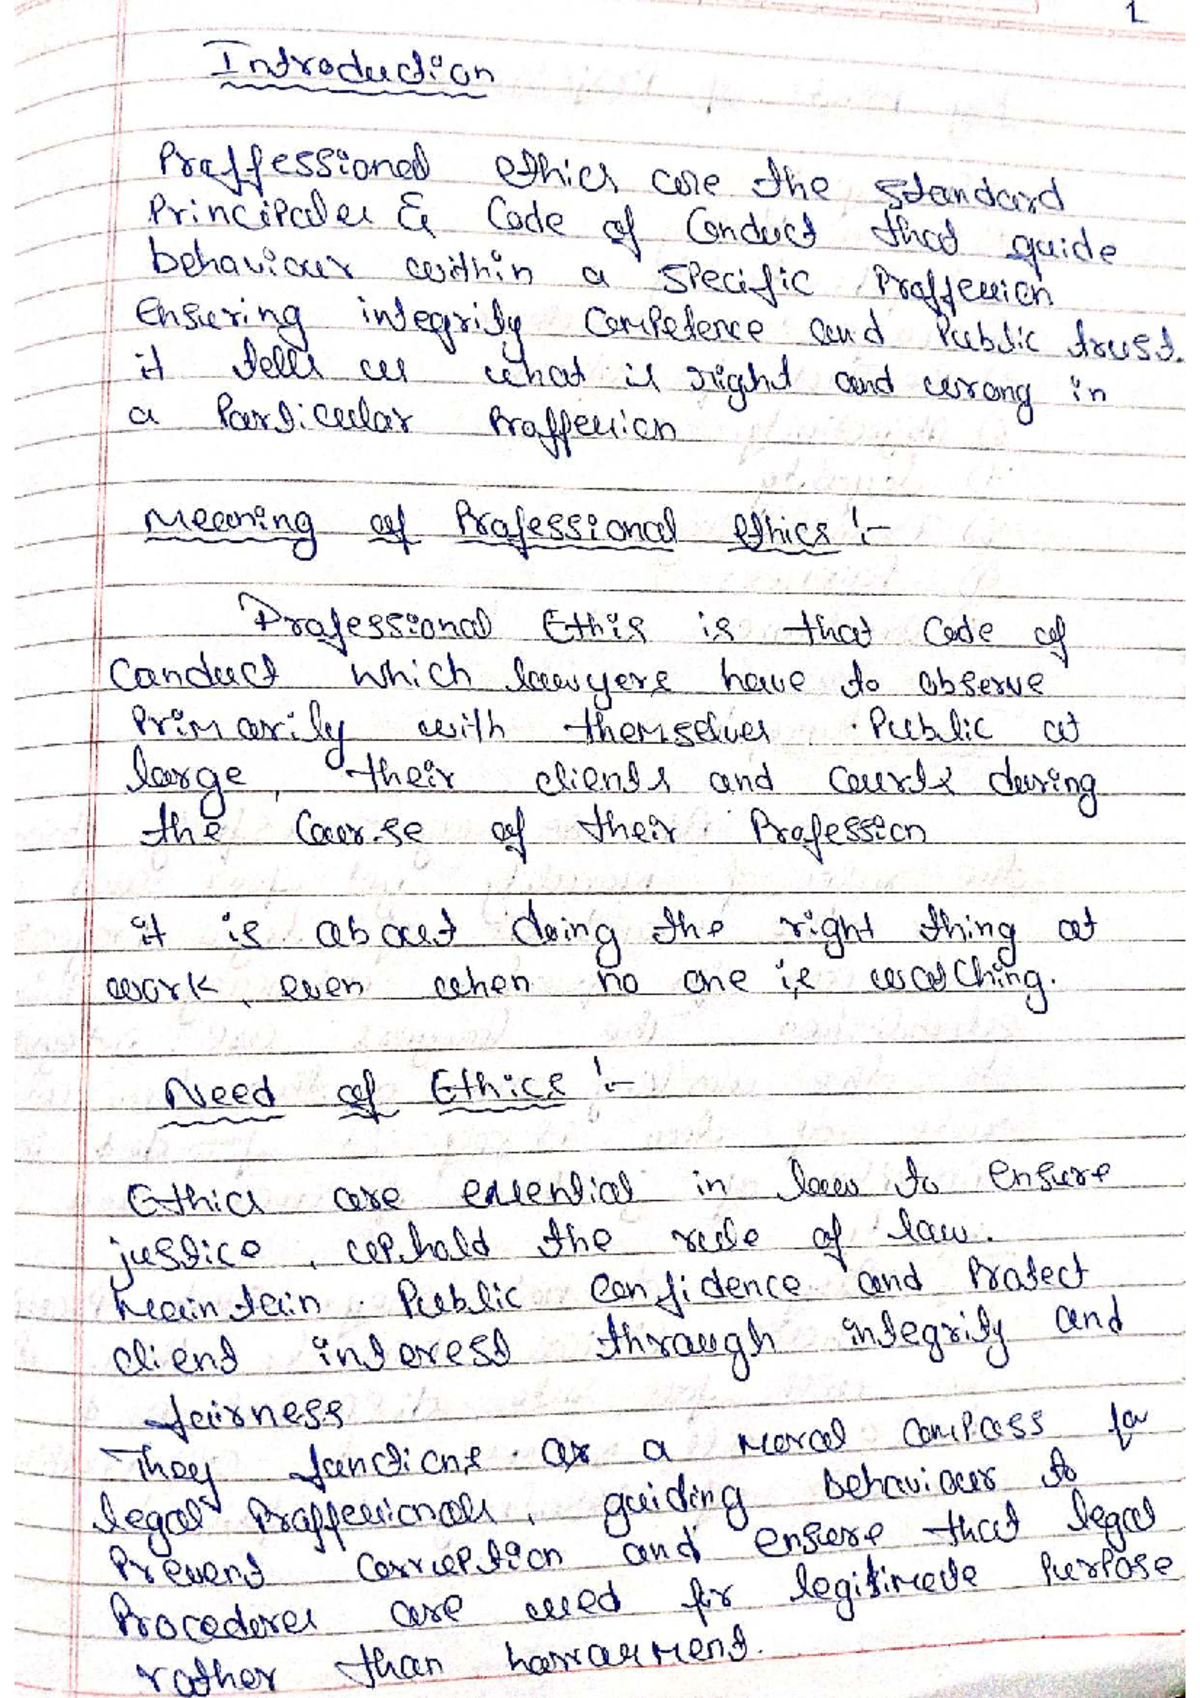 1
Introduction
Proffessional ethics are the standard
Principales & Code of Conduct that guide
behaviour within a specific Proffession
Ensuring integrity Competence and Public trust.
it tells us what is right and wrong in
a Particular Proffession
Meaning of Professional Ethics :-
Professional Ethis is that Code of
Conduct which lawyers have to observe
Primarily with themselves. Public at
large, their clients and Courts during
the Course of their Profession
it is about doing the right thing at
work, even when no one is watching.
Need of Ethics :-
Ethics are essential in law to ensure
justice, uphold the rule of law.
Maintain Public Confidence and Protect
client interest through integrity and
fairness
They functions as a moral Compass for
legal Proffessionals, guiding behaviour to
Prevent Corruption and ensure that legal
Procederes are used for legitimate Purpose
rather than harrassment.